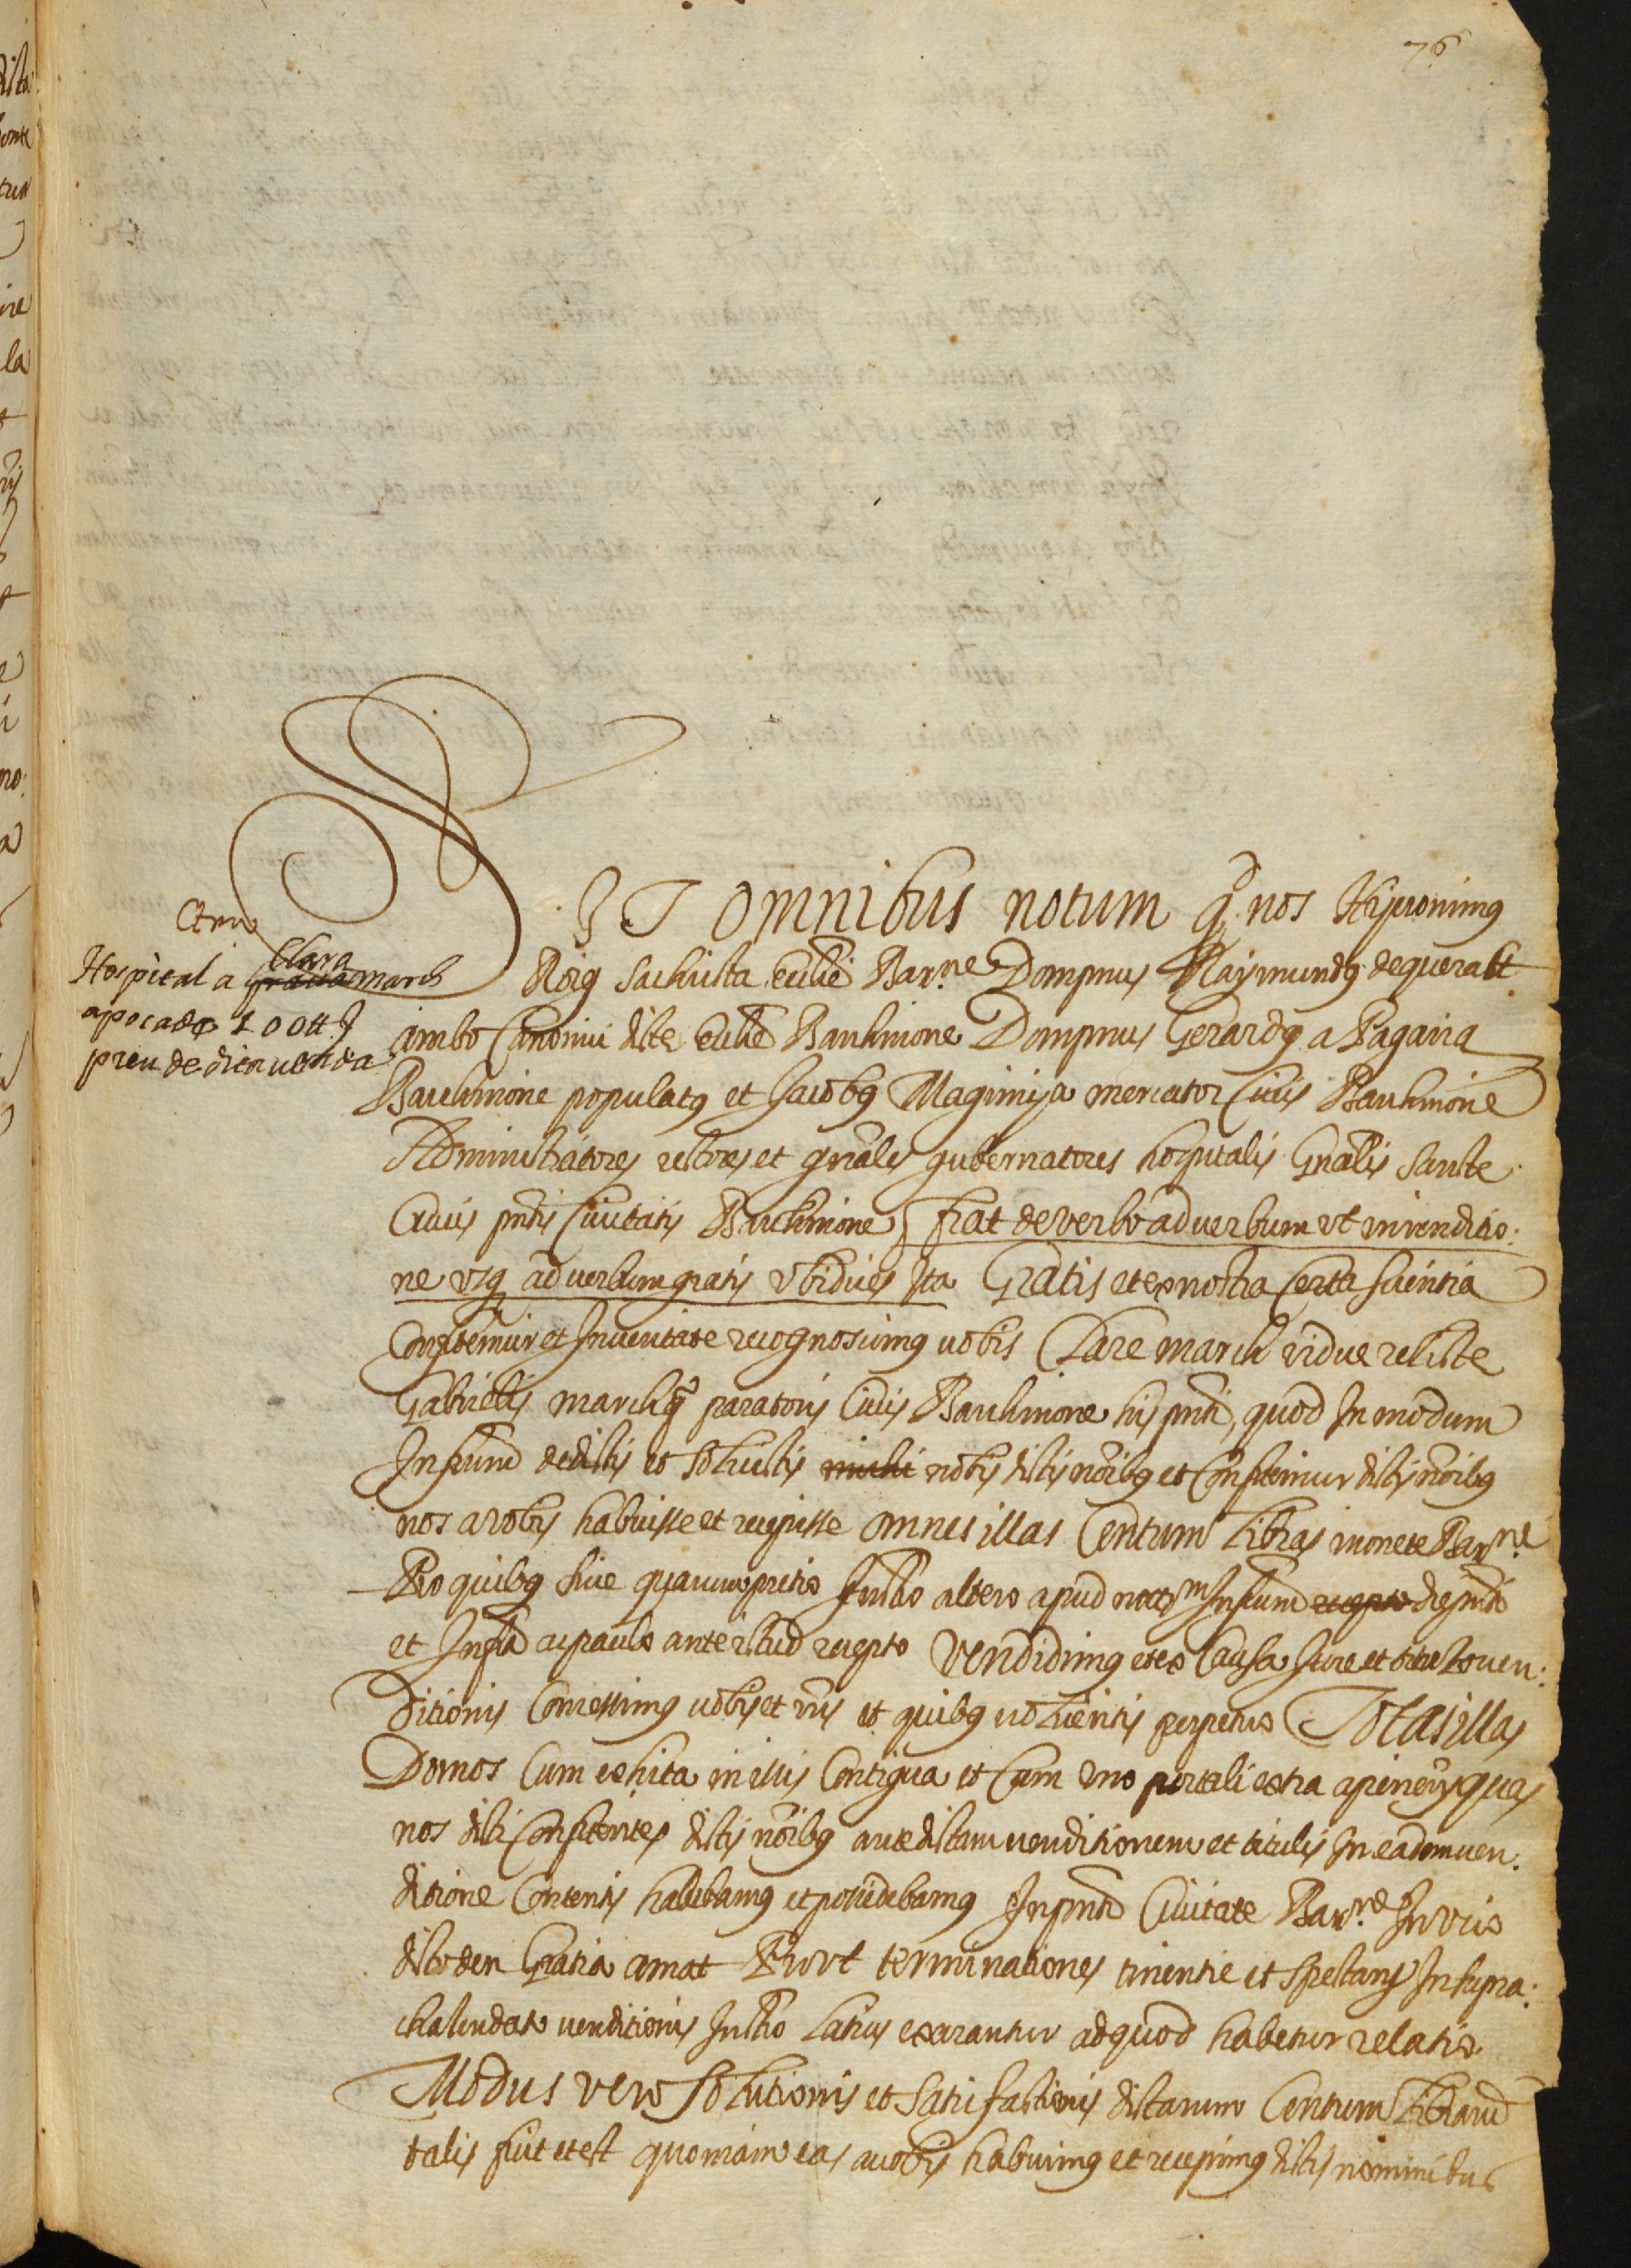 76
SIT omnibus notum q. nos Hieronimus
Roig sachrista ecclie Barne. Dompnus Raymundus dequeralt
ambo Canonici dicte ecclie Barchinone Dompnus Gerardus a Paguera
Barchinone populatus et Jacobus Magimija mercator Civis Barchinone
Administratores rectores et gnales gubernatores hospitalis Gnalis Sancte
Crucis pntis Civitatis Barchinone fiat de verbo ad verbum ut in venditio:
ne usq ad verbum gratis ubi dicit Ita Gratis et ex nostra Certa scientia
Confitemur et In veritate recognoscimus vobis Clare march vidue relicte
Gabrielis march q paratoris Civis Barchinone his pnti, quod In modum
Infrum dedistis et solvistis michi nobis dictis noibus et Confitemur dictis noibus
nos a vobis habuisse et recepisse omnes illas Centum Libras monete Barne
Pro quibus sive quarum pretio Instro altero apud nottm Infrum recepto die pnti
et Infra ac paulo ante istud recepto Vendidimus et ex Causa Jure et titulo ven:
ditionis Concessimus vobis et vris et quibus volueritis perpetuo Totas illas
Domos Cum exhita in illis Contigua et Cum uno portali extra apineus quas
nos dicti Confitentes dictis noibus ante dictam venditionem et titulis In eadem ven.
ditione Contentis habebamus et possidebamus In pnti Civitate Barne In vico
dicto den Gratia amat Prout terminationes tinentie et spectans In supra:
chalendato venditionis Instro latius exarantur ad quod habetur relatio
Modus vero solutionis et satisfactionis dictarum Centum Librarum
talis fuit et est quoniam eas a vobis habuimus et recepimus dictis nominibus
Clara
Hospital a gratia march
apoca de 100 ll
preu de dita venda